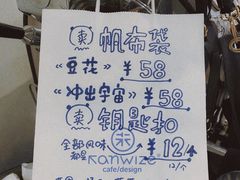 卖 帆布袋
《豆花》 ¥58
《冲出宇宙》 ¥58
卖 钥匙扣
全部风味 ¥12/个
都是
konwize
cafe/design
12/个